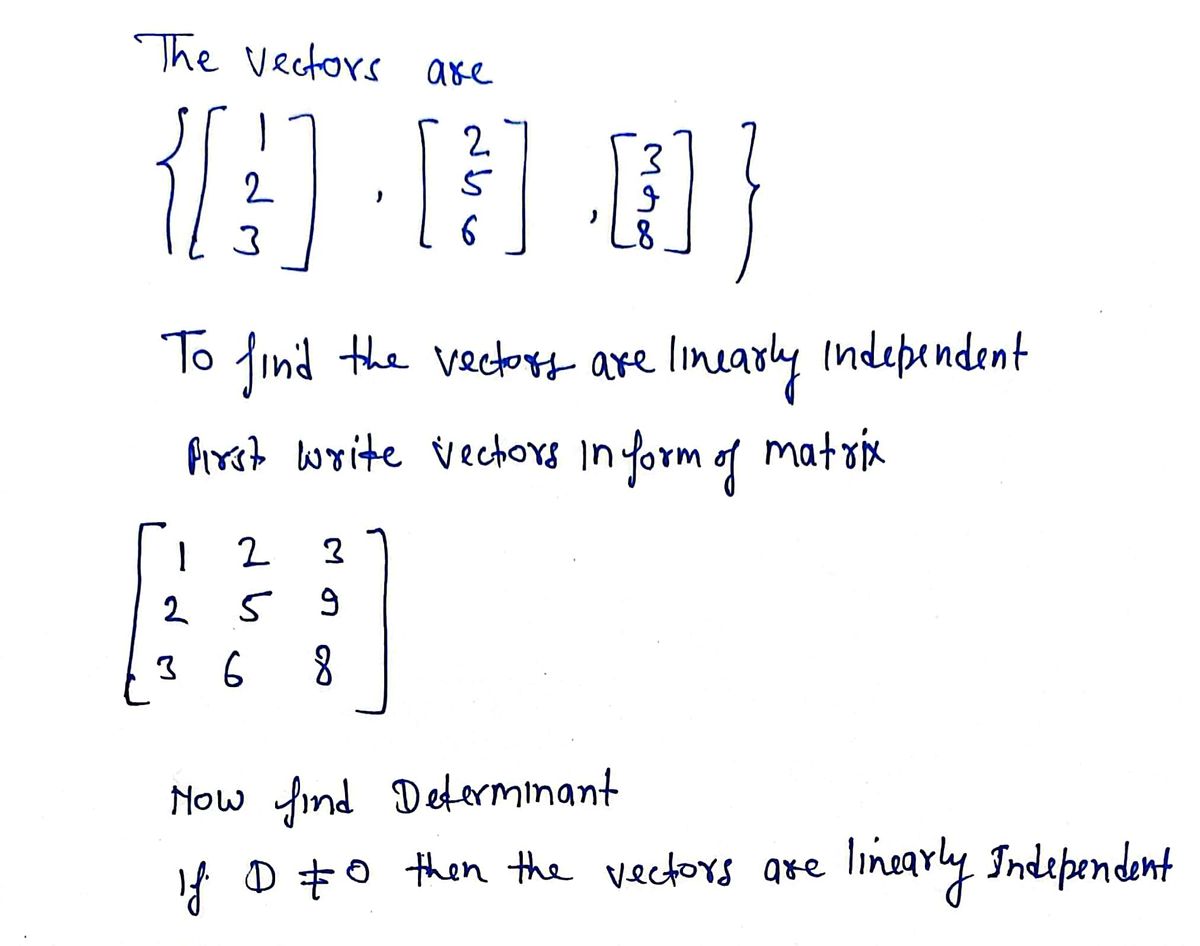 The vectors are
{[1 2 3], [2 5 6], [3 9 8]}
To find the vectors are linearly independent
first write vectors in form of matrix
[1 2 3
2 5 9
3 6 8]
Now find Determinant
If D ≠ 0 then the vectors are linearly Independent